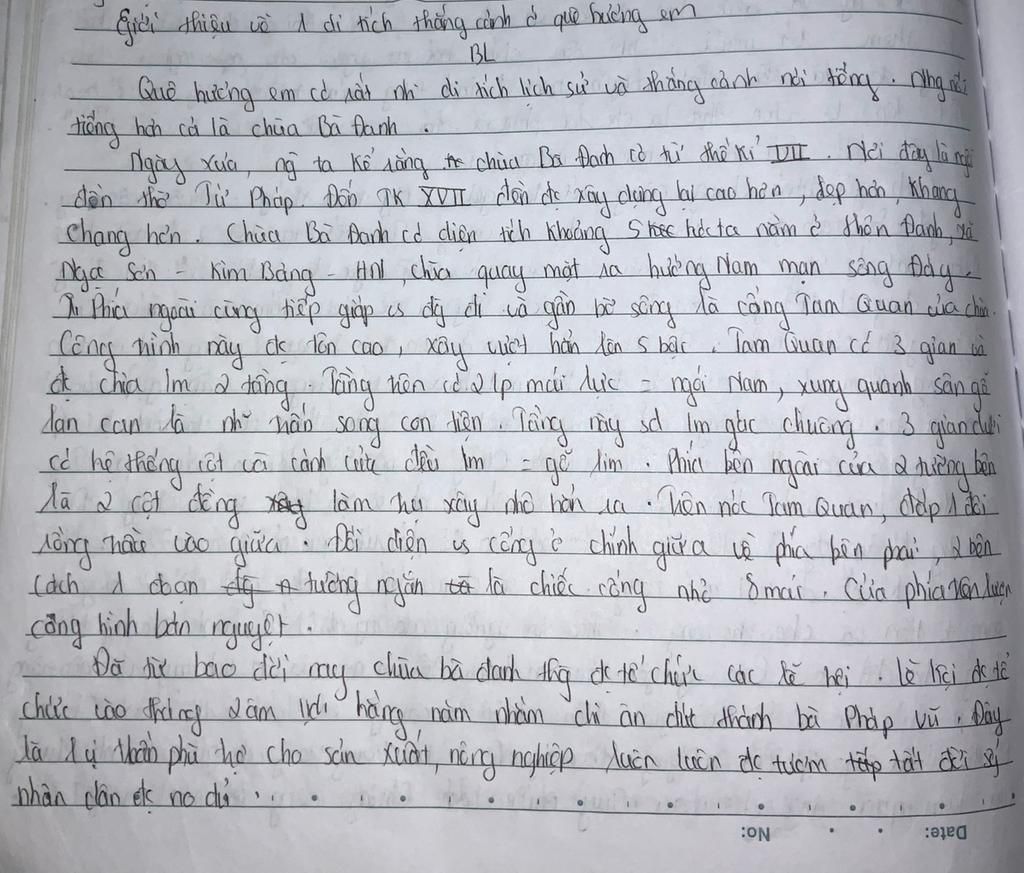 Giới thiệu về 1 di tích thắng cảnh ở quê hương em
BL
Quê hương em có rất nhi di tích lịch sử và thắng cảnh nổi tiếng. Nhg nổi
tiếng hơn cả là chùa Bà Đanh.
Ngày xưa, ng ta kể rằng chùa Bà Đanh có từ thế kỉ VII. Nơi đây là ngôi
đền thờ Tứ Pháp. Đến TK XVII, đền đc xây dựng lại cao hơn, đẹp hơn, khang
chang hơn. Chùa Bà Đanh có diện tích khoảng 5 hécta nằm ở thôn Đanh, xã
Ngọc Sơn - Kim Bảng - HN, chùa quay mặt ra hướng Nam mạn sông Đáy.
Phía ngoài cùng tiếp giáp vs đg đi và gần bờ sông là cổng Tam Quan của chùa.
Công trình này đc tôn cao, xây vượt hẳn lên 5 bậc. Tam Quan có 3 gian và
đc chia lm 2 tầng. Tầng trên có 2 lp mái lực = ngói Nam, xung quanh sàn gỗ
lan can là nh hàng song con tiện. Tầng này sd lm gác chuông. 3 gian dưới
có hệ thống cột và cánh cửa đều lm = gỗ lim. Phía bên ngoài của 2 tường bên
là 2 cột đồng làm hự xây nhô hẳn ra. Trên nóc Tam Quan, đắp 1 đôi
rồng chầu vào giữa. Đối diện vs cổng ở chính giữa về phía bên phải, 2 bên
cách 1 đoạn tường ngắn là chiếc cổng nhỏ 8 mái. Cửa phía trên lượn
cong hình bán nguyệt.
Đã từ bao đời nay chùa bà đanh thg đc tổ chức các lễ hội. Lễ hội đc tổ
chức vào tháng 2 âm lịch hàng năm nhằm chi ân đức thánh bà Pháp Vũ. Đây
là vị thần phù hộ cho sản xuất, nông nghiệp luôn luôn đc tươm tất đời sống
nhân dân đc no đủ.
Date: No: